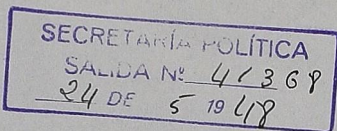 SECRETARÍA POLÍTICA
SALIDA Nº 41368
24 DE 5 1948